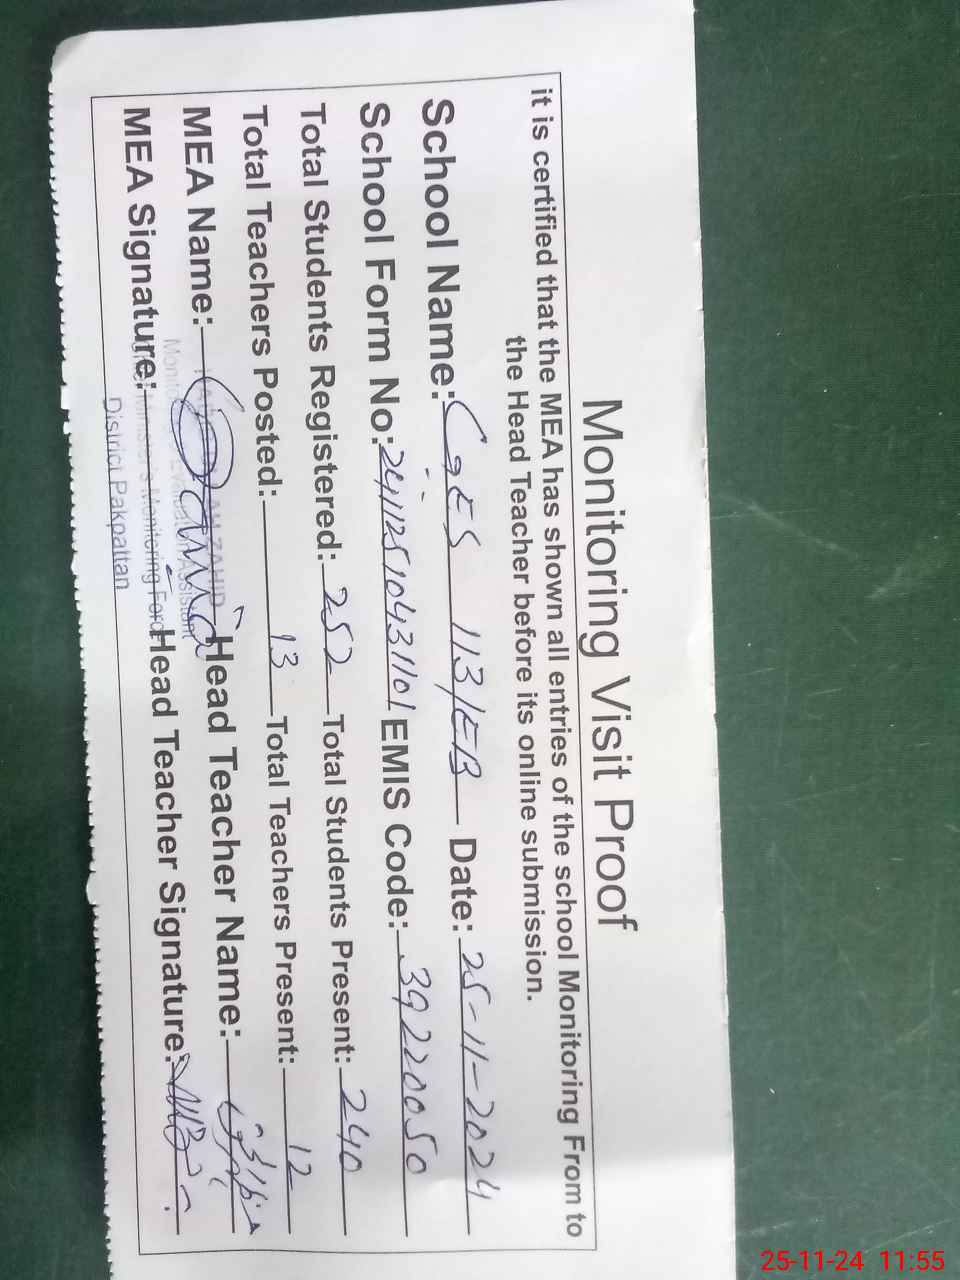 Monitoring Visit Proof
it is certified that the MEA has shown all entries of the school Monitoring From to
the Head Teacher before its online submission.
School Name: GES 113/EB Date: 25-11-2024
School Form No: 24112510431101 EMIS Code: 39220050
Total Students Registered: 252 Total Students Present: 240
Total Teachers Posted: 13 Total Teachers Present: 12
MEA Name: Head Teacher Name:
MEA Signature: Head Teacher Signature:
ZAHID
Monitoring Evaluation Assistant
Chief Minister's Monitoring Force
District Pakpattan
25-11-24 11:55